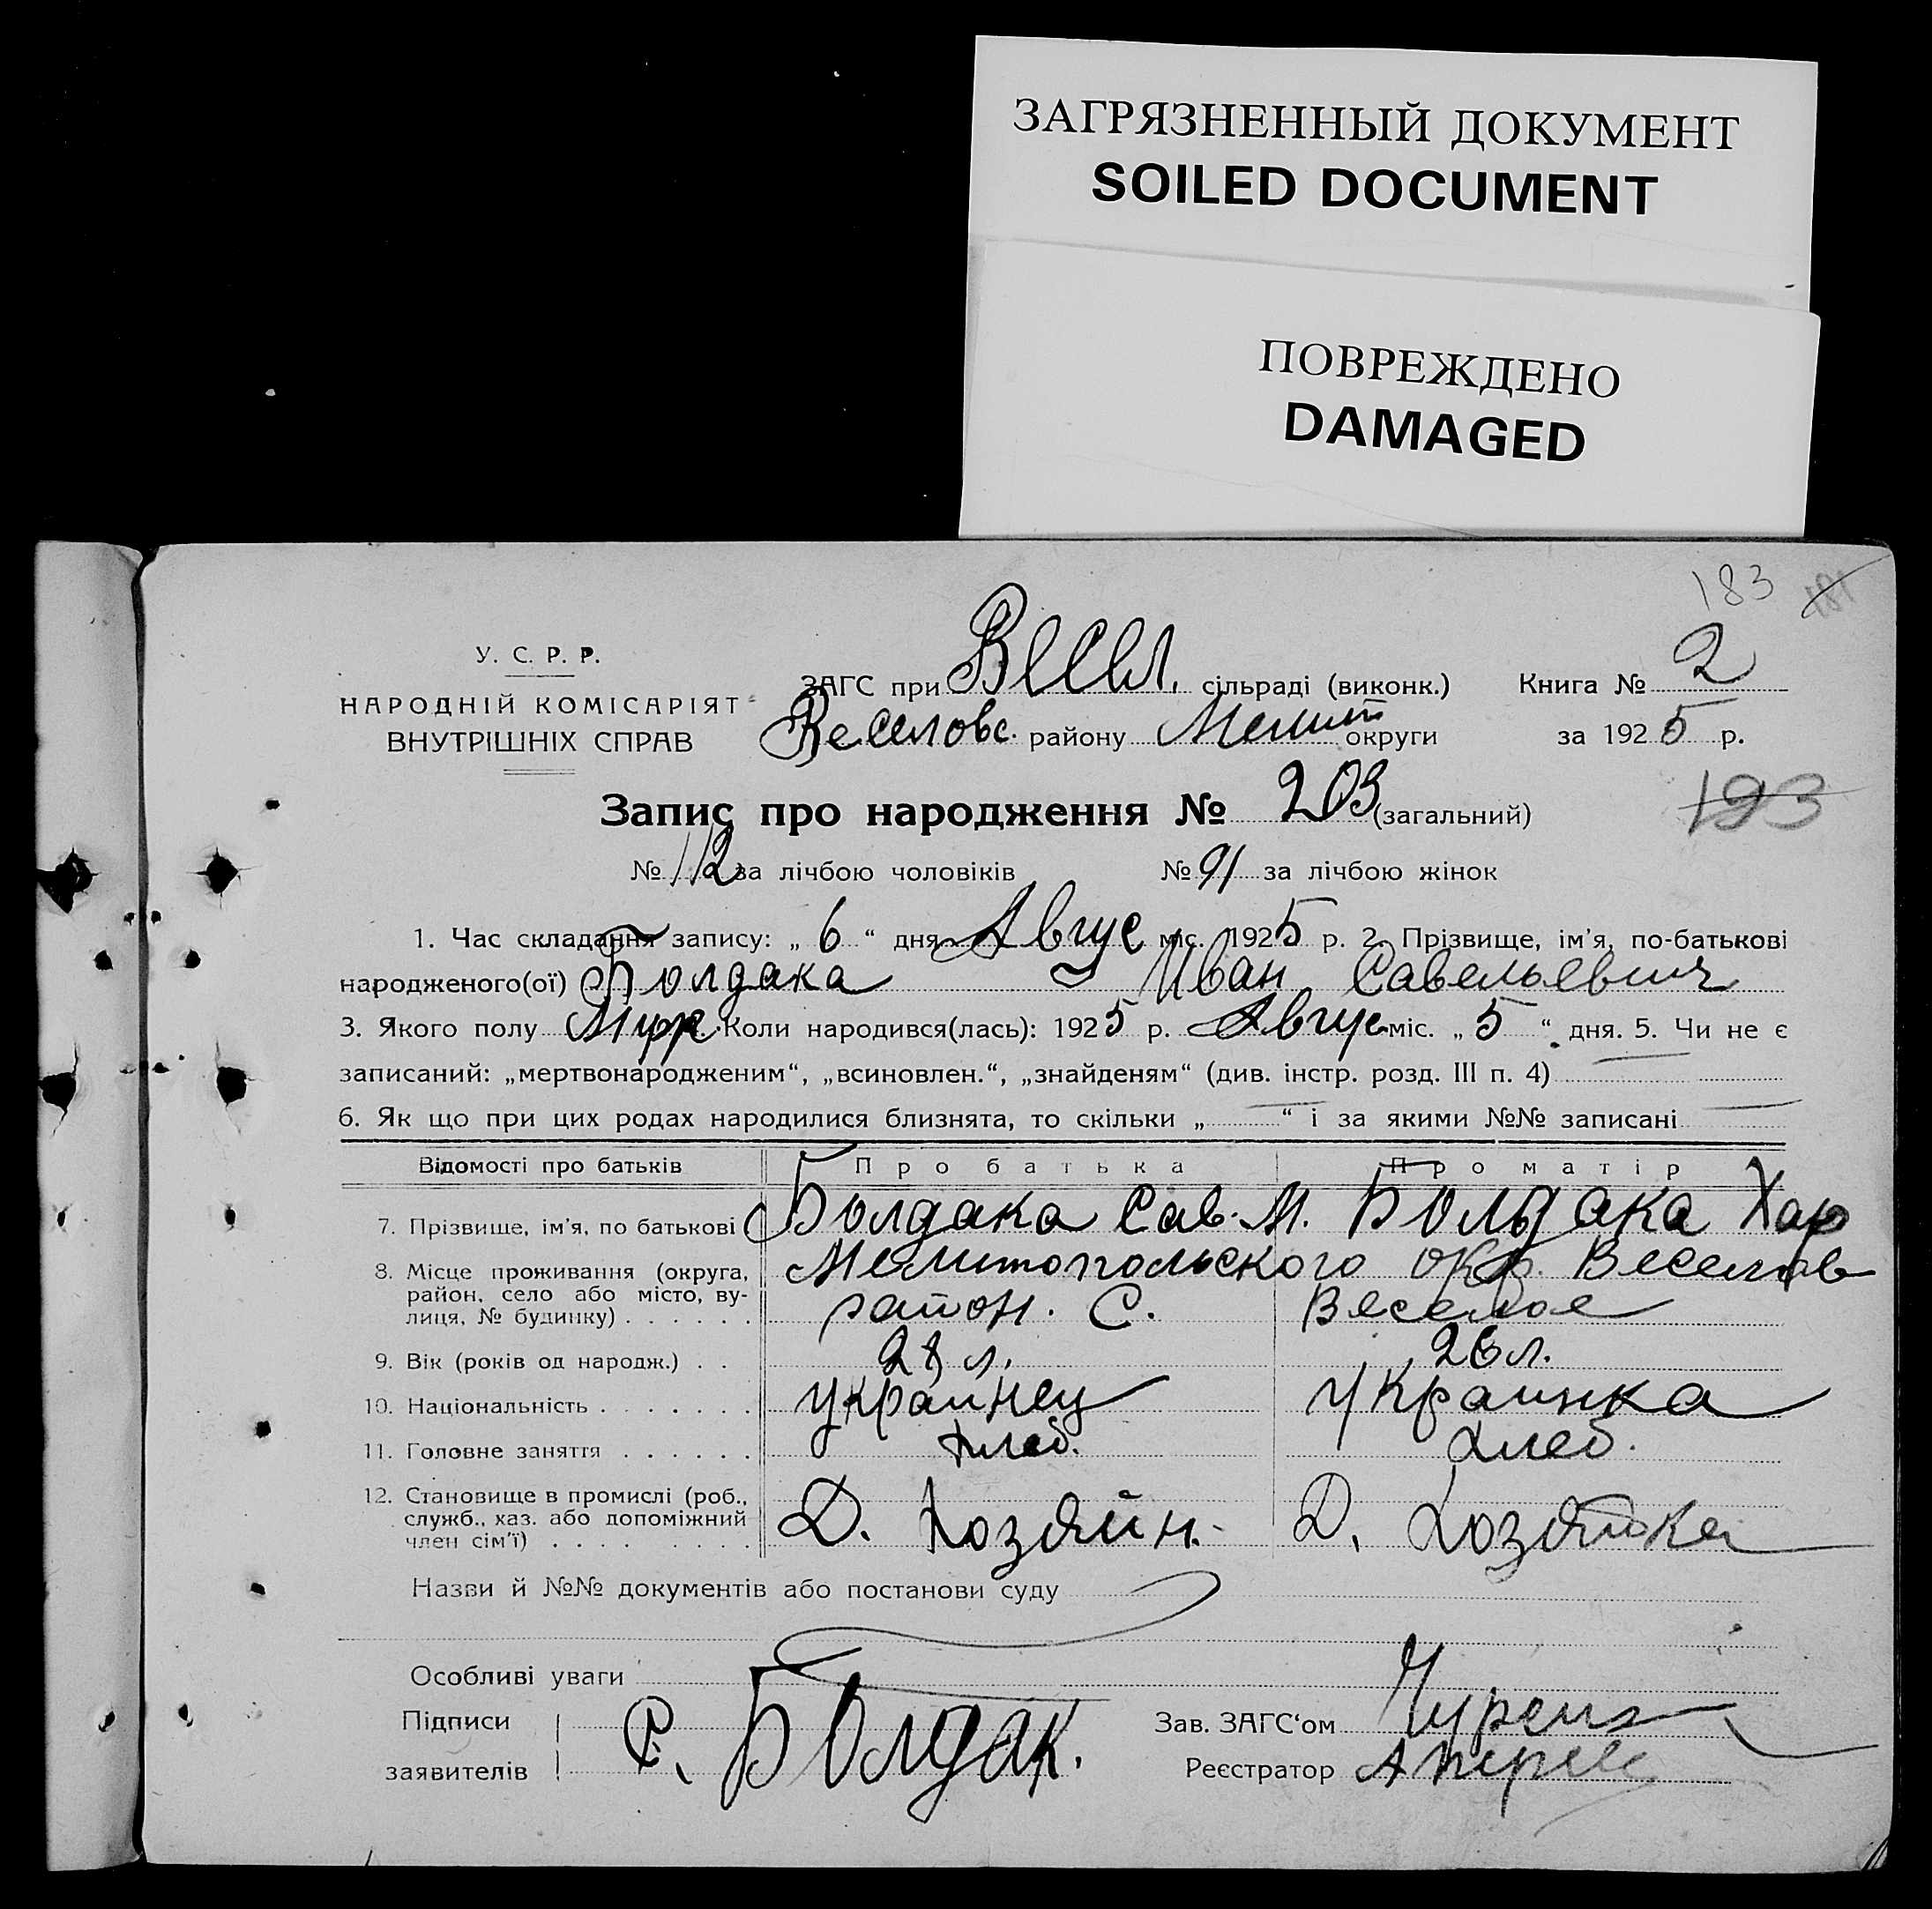 ЗАГРЯЗНЕННЫЙ ДОКУМЕНТ
SOILED DOCUMENT
ПОВРЕЖДЕНО
DAMAGED
183 181
У. С. Р. Р.
НАРОДНІЙ КОМІСАРІЯТ
ВНУТРІШНІХ СПРАВ
ЗАГС при Весел. сільраді (виконк.) Книга № 2
Веселовс. району Мелит округи за 1925 р.
Запис про народження № 203 (загальний) 193
№ 112 за лічбою чоловіків № 91 за лічбою жінок
1. Час складання запису: „ 6 “ дня Авгус міс. 1925 р. 2. Прізвище, ім’я, по-батькові
народженого(ої) Болдака Иван Савельевич
3. Якого полу Коли народився(лась): 1925 р. Авгус міс. „ 5 “ дня. 5. Чи не є
записаний: „мертвонародженим“, „всиновлен.“, „знайденям“ (див. інстр. розд. III п. 4)
6. Як що при цих родах народилися близнята, то скільки „ “ і за якими №№ записані
Відомості про батьків Про батька Про матір
7. Прізвище, ім’я, по батькові Болдака Сав. М. Болдака Хар
8. Місце проживання (округа, район, село або місто, ву-
лиця, № будинку) Мелитопольского окр. Веселов
район. С. Веселое
9. Вік (років од народж.) 28 л. 26 л.
10. Національність украйнец украинка
11. Головне заняття хлеб. хлеб.
12. Становище в промислі (роб.,
служб., хаз. або допоміжний
член сім’ї) Д. Хозяйн. Д. Хозяйка
Назви й №№ документів або постанови суду
Особливі уваги
Підписи
заявителів С. Болдак.
Зав. ЗАГС‘ом
Реєстратор